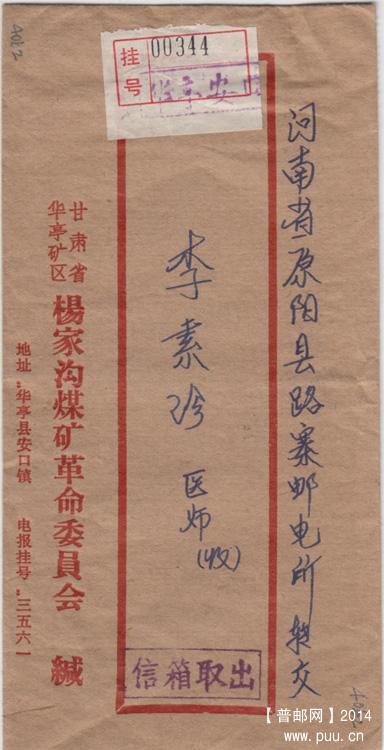 4012
挂号
00344
华亭安口
河南省原阳县路寨邮电所转交
李素珍 医师(收)
甘肃省
华亭矿区
楊家沟煤矿革命委員会 缄
地址:华亭县安口镇 电报挂号:三五六一
信箱取出
4012
【普邮网】2014
www.puu.cn